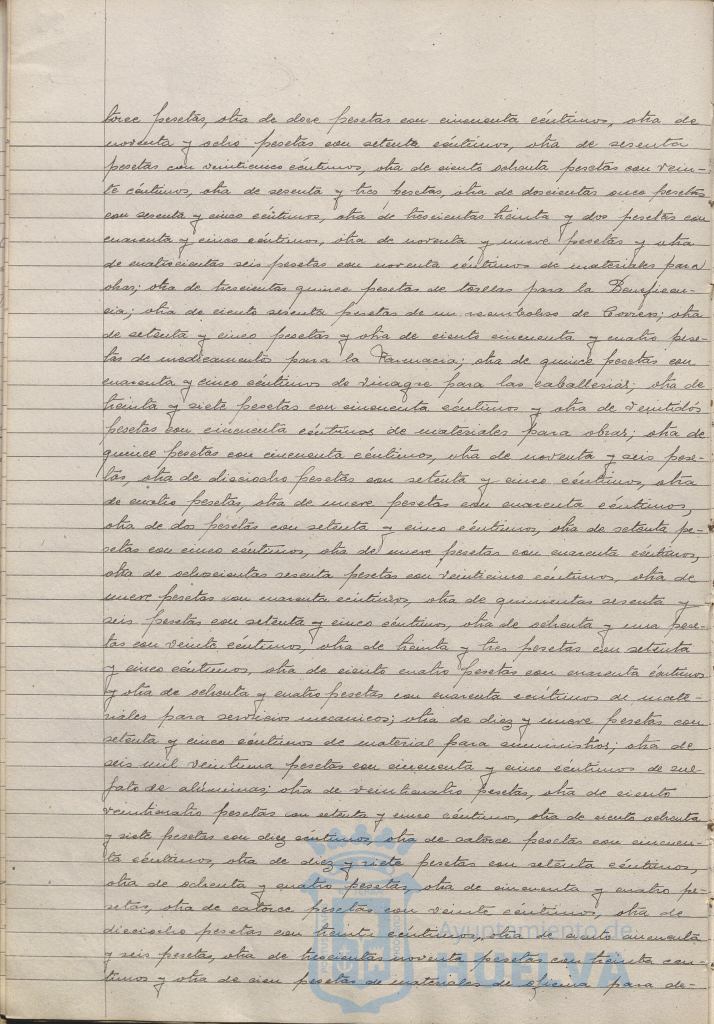 torce pesetas, otra de doce pesetas con cincuenta céntimos, otra de
noventa y ocho pesetas con setenta céntimos, otra de sesenta
pesetas con veinticinco céntimos, otra de ciento ochenta pesetas con vein-
te céntimos, otra de sesenta y tres pesetas, otra de doscientas once pesetas
con sesenta y cinco céntimos, otra de trescientas treinta y dos pesetas con
cuarenta y cinco céntimos, otra de noventa y nueve pesetas y otra
de cuatrocientas seis pesetas con noventa céntimos de materiales para
obras; otra de trescientas quince pesetas de toallas para la Beneficen-
cia; otra de ciento sesenta pesetas de un reembolso de Correos; otra
de setenta y cinco pesetas y otra de ciento cincuenta y cuatro pese-
tas de medicamentos para la Farmacia; otra de quince pesetas con
cuarenta y cinco céntimos de vinagre para las caballerias; otra de
treinta y siete pesetas con cincuenta céntimos y otra de veintidós
pesetas con cincuenta céntimos de materiales para obras; otra de
quince pesetas con cincuenta céntimos, otra de noventa y seis pese-
tas, otra de dieciocho pesetas con setenta y cinco céntimos, otra
de cuatro pesetas, otra de nueve pesetas con cuarenta céntimos,
otra de dos pesetas con setenta y cinco céntimos, otra de setenta pe-
setas con cinco céntimos, otra de nueve pesetas con cuarenta céntimos,
otra de ochocientas sesenta pesetas con veinticinco céntimos, otra de
nueve pesetas con cuarenta céntimos, otra de quinientas sesenta y
seis pesetas con setenta y cinco céntimos, otra de ochenta y una pese-
tas con veinte céntimos, otra de treinta y tres pesetas con setenta
y cinco céntimos, otra de ciento cuatro pesetas con cuarenta céntimos
y otra de ochenta y cuatro pesetas con cuarenta céntimos de mate-
riales para servicios mecanicos; otra de diez y nueve pesetas con
setenta y cinco céntimos de material para suministros; otra de
seis mil veintiuna pesetas con cincuenta y cinco céntimos de sul
fato de alúminas; otra de veinticuatro pesetas, otra de ciento
veinticuatro pesetas con setenta y cinco céntimos, otra de ciento ochenta
y siete pesetas con diez céntimos, otra de catorce pesetas con cincuen-
ta céntimos, otra de diez y siete pesetas con setenta céntimos,
otra de ochenta y cuatro pesetas, otra de cincuenta y cuatro pe-
setas, otra de catorce pesetas con veinte céntimos, otra de
dieciocho pesetas con treinta céntimos, otra de ciento cuarenta
y seis pesetas, otra de trescientas noventa pesetas con treinta cen-
timos y otra de cien pesetas de materiales de oficina para de-
Ayuntamiento de
HUELVA